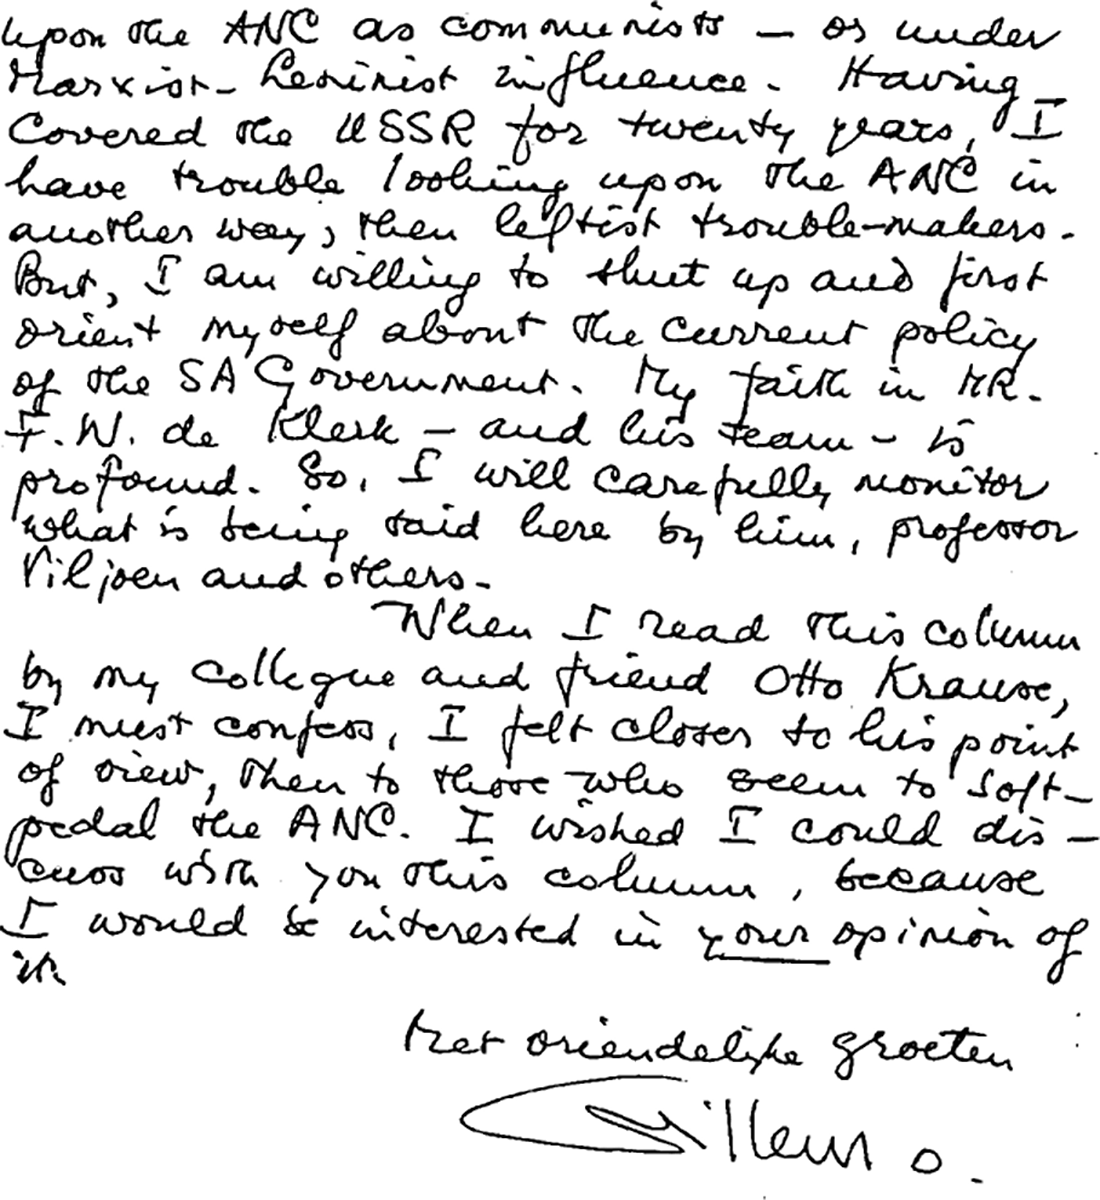 upon the ANC as communists – or under
Marxist-Leninist influence. Having
Covered the USSR for twenty years, I
have trouble looking upon the ANC in
another way, then leftist trouble-makers.
But, I am willing to shut up and first
orient myself about the current policy
of the SA Government. My faith in MR.
F.W. de Klerk – and his team – is
profound. So, I will carefully monitor
what is being said here by him, professor
Viljoen and others.
When I read this column
by my collegue and friend Otto Krause,
I must confess, I felt closer to his point
of view, then to those who seem to soft-
pedal the ANC. I wished I could dis-
cuss with you this column, because
I would be interested in your opinion of
it.
Met vriendelijke groeten
Willem O.